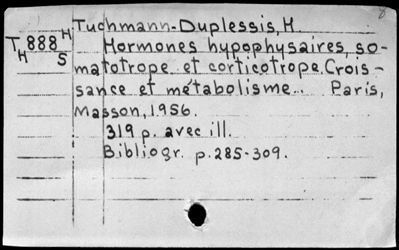 8
Tuchmann-Duplessis, H.
T 888 H
H S
Hormones hypophysaires, so-
matotrope et corticotrope. Crois-
sance et métabolisme.. Paris,
Masson, 1956.
319 p. avec ill.
Bibliogr. p. 285-309.